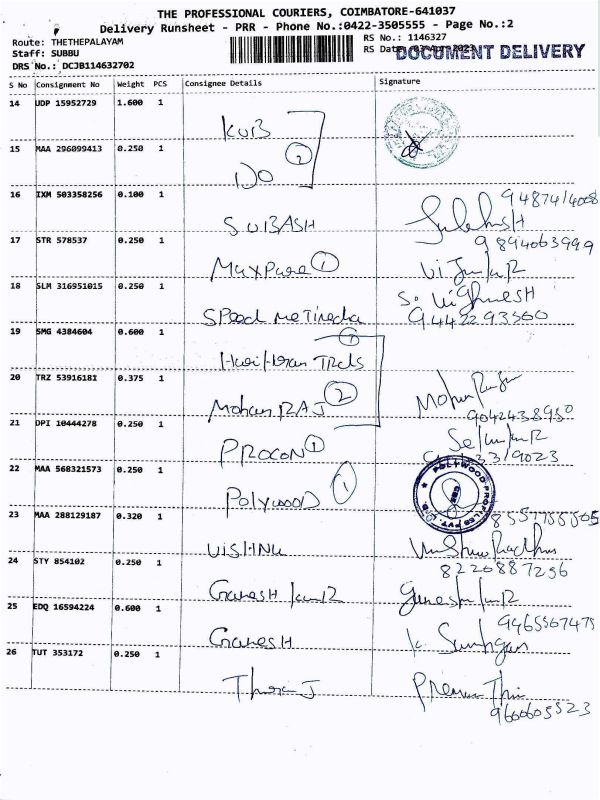 THE PROFESSIONAL COURIERS, COIMBATORE-641037
Delivery Runsheet - PRR - Phone No.:0422-3505555 - Page No.:2
Route: THETHEPALAYAM
RS No.: 1146327
Staff: SUBBU
RS Date: 03-Apr-2023
DOCUMENT DELIVERY
DRS No.: DCJB114632702
S No Consignment No Weight PCS Consignee Details Signature
14 UDP 15952729 1.600 1
KUB
15 MAA 296099413 0.250 1
DO
2
16 IXM 503358256 0.100 1
SUBASH
9487414008
17 STR 578537 0.250 1
9894063999
Maxpure 1
VijunkR
18 SLM 316951015 0.250 1
S. VighnesH
Speed me Tinedka
9442293500
1
19 SMG 4384604 0.600 1
Hari Haran Trds
20 TRZ 53916181 0.375 1
Mohan RAJ 2
9042438950
21 DPI 10444278 0.250 1
PROCON 1
22 MAA 568321573 0.250 1
POLYWOOD PROFILES PVT. LTD.
Polywood 1
23 MAA 288129187 0.320 1
VISHNU
24 STY 854102 0.250 1
8220887256
GanesH kumR
GanesH kumR
25 EDQ 16594224 0.600 1
9465567475
GanesH
26 TUT 353172 0.250 1
9600605523